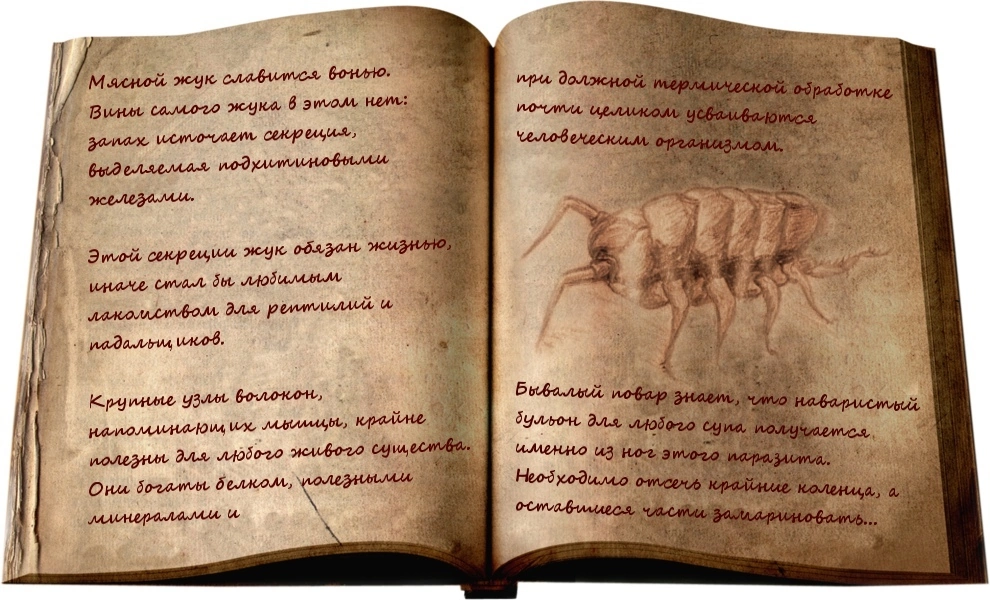 Мясной жук славится вонью.
Вины самого жука в этом нет:
запах источает секреция,
выделяемая подхитиновыми
железами.
Этой секреции жук обязан жизнью,
иначе стал бы любимым
лакомством для рептилий и
падальщиков.
Крупные узлы волокон,
напоминающих мышцы, крайне
полезны для любого живого существа.
Они богаты белком, полезными
минералами и
при должной термической обработке
почти целиком усваиваются
человеческим организмом.
Бывалый повар знает, что наваристый
бульон для любого супа получается
именно из ног этого паразита.
Необходимо отсечь крайние коленца, а
оставшиеся части замариновать...